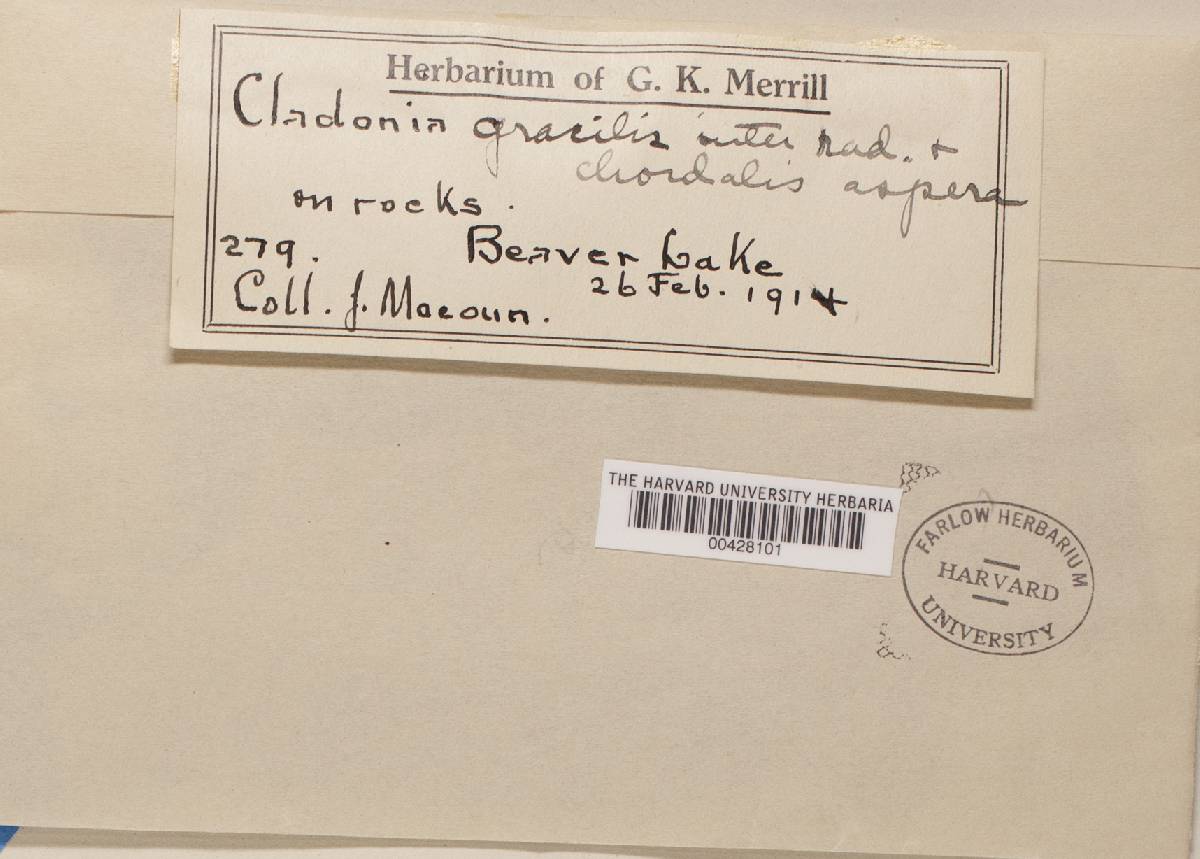 Herbarium of G. K. Merrill
Cladonia gracilis inter rad. +
chordalis aspera
on rocks.
279. Beaver Lake
26 Feb. 1914
Coll. J. Macoun.
THE HARVARD UNIVERSITY HERBARIA
00428101
FARLOW HERBARIUM
HARVARD
UNIVERSITY